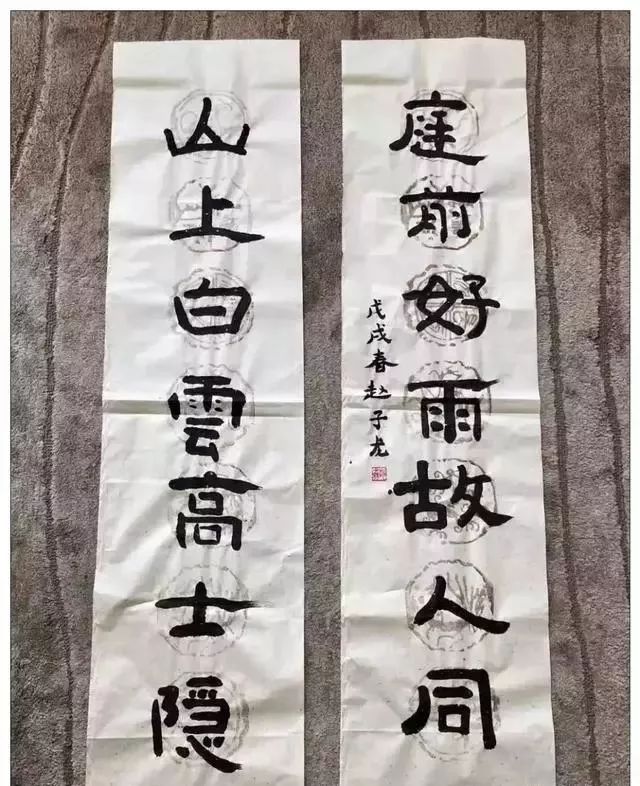 山上白雲高士隐
庭前好雨故人同
戊戌春赵子龙